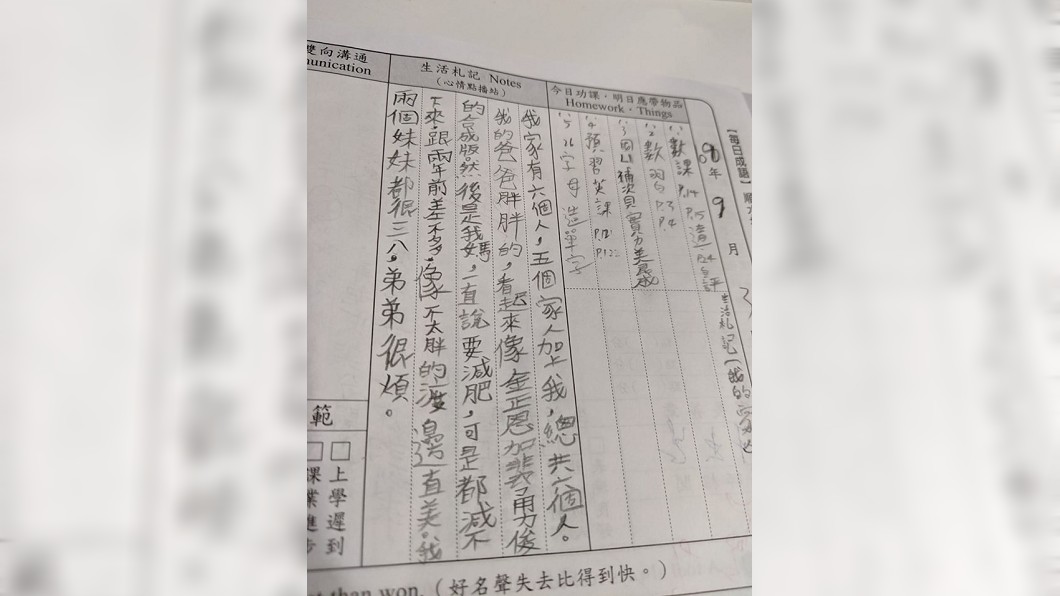 【每日成語】
年
9
月
今日功課・明日應帶物品
Homework・Things
(1)數課 P.14 P.15
(2)數習 P.3 P.4
(4)預習英課
(5)26字母造單字
生活札記 Notes
(心情點播站)
我家有六個人，五個家人加上我，總共六個人。
我的爸爸胖胖的，看起來像金正恩加裴勇俊
的合成版。然後是我媽，一直說要減肥，可是都減不
下來，跟兩年前差不多，像不太胖的渡邊直美。我
兩個妹妹都很三八，弟弟很煩。
雙向溝通
munication
範
上學遲到
課業進步
than won.（好名聲失去比得到快。）